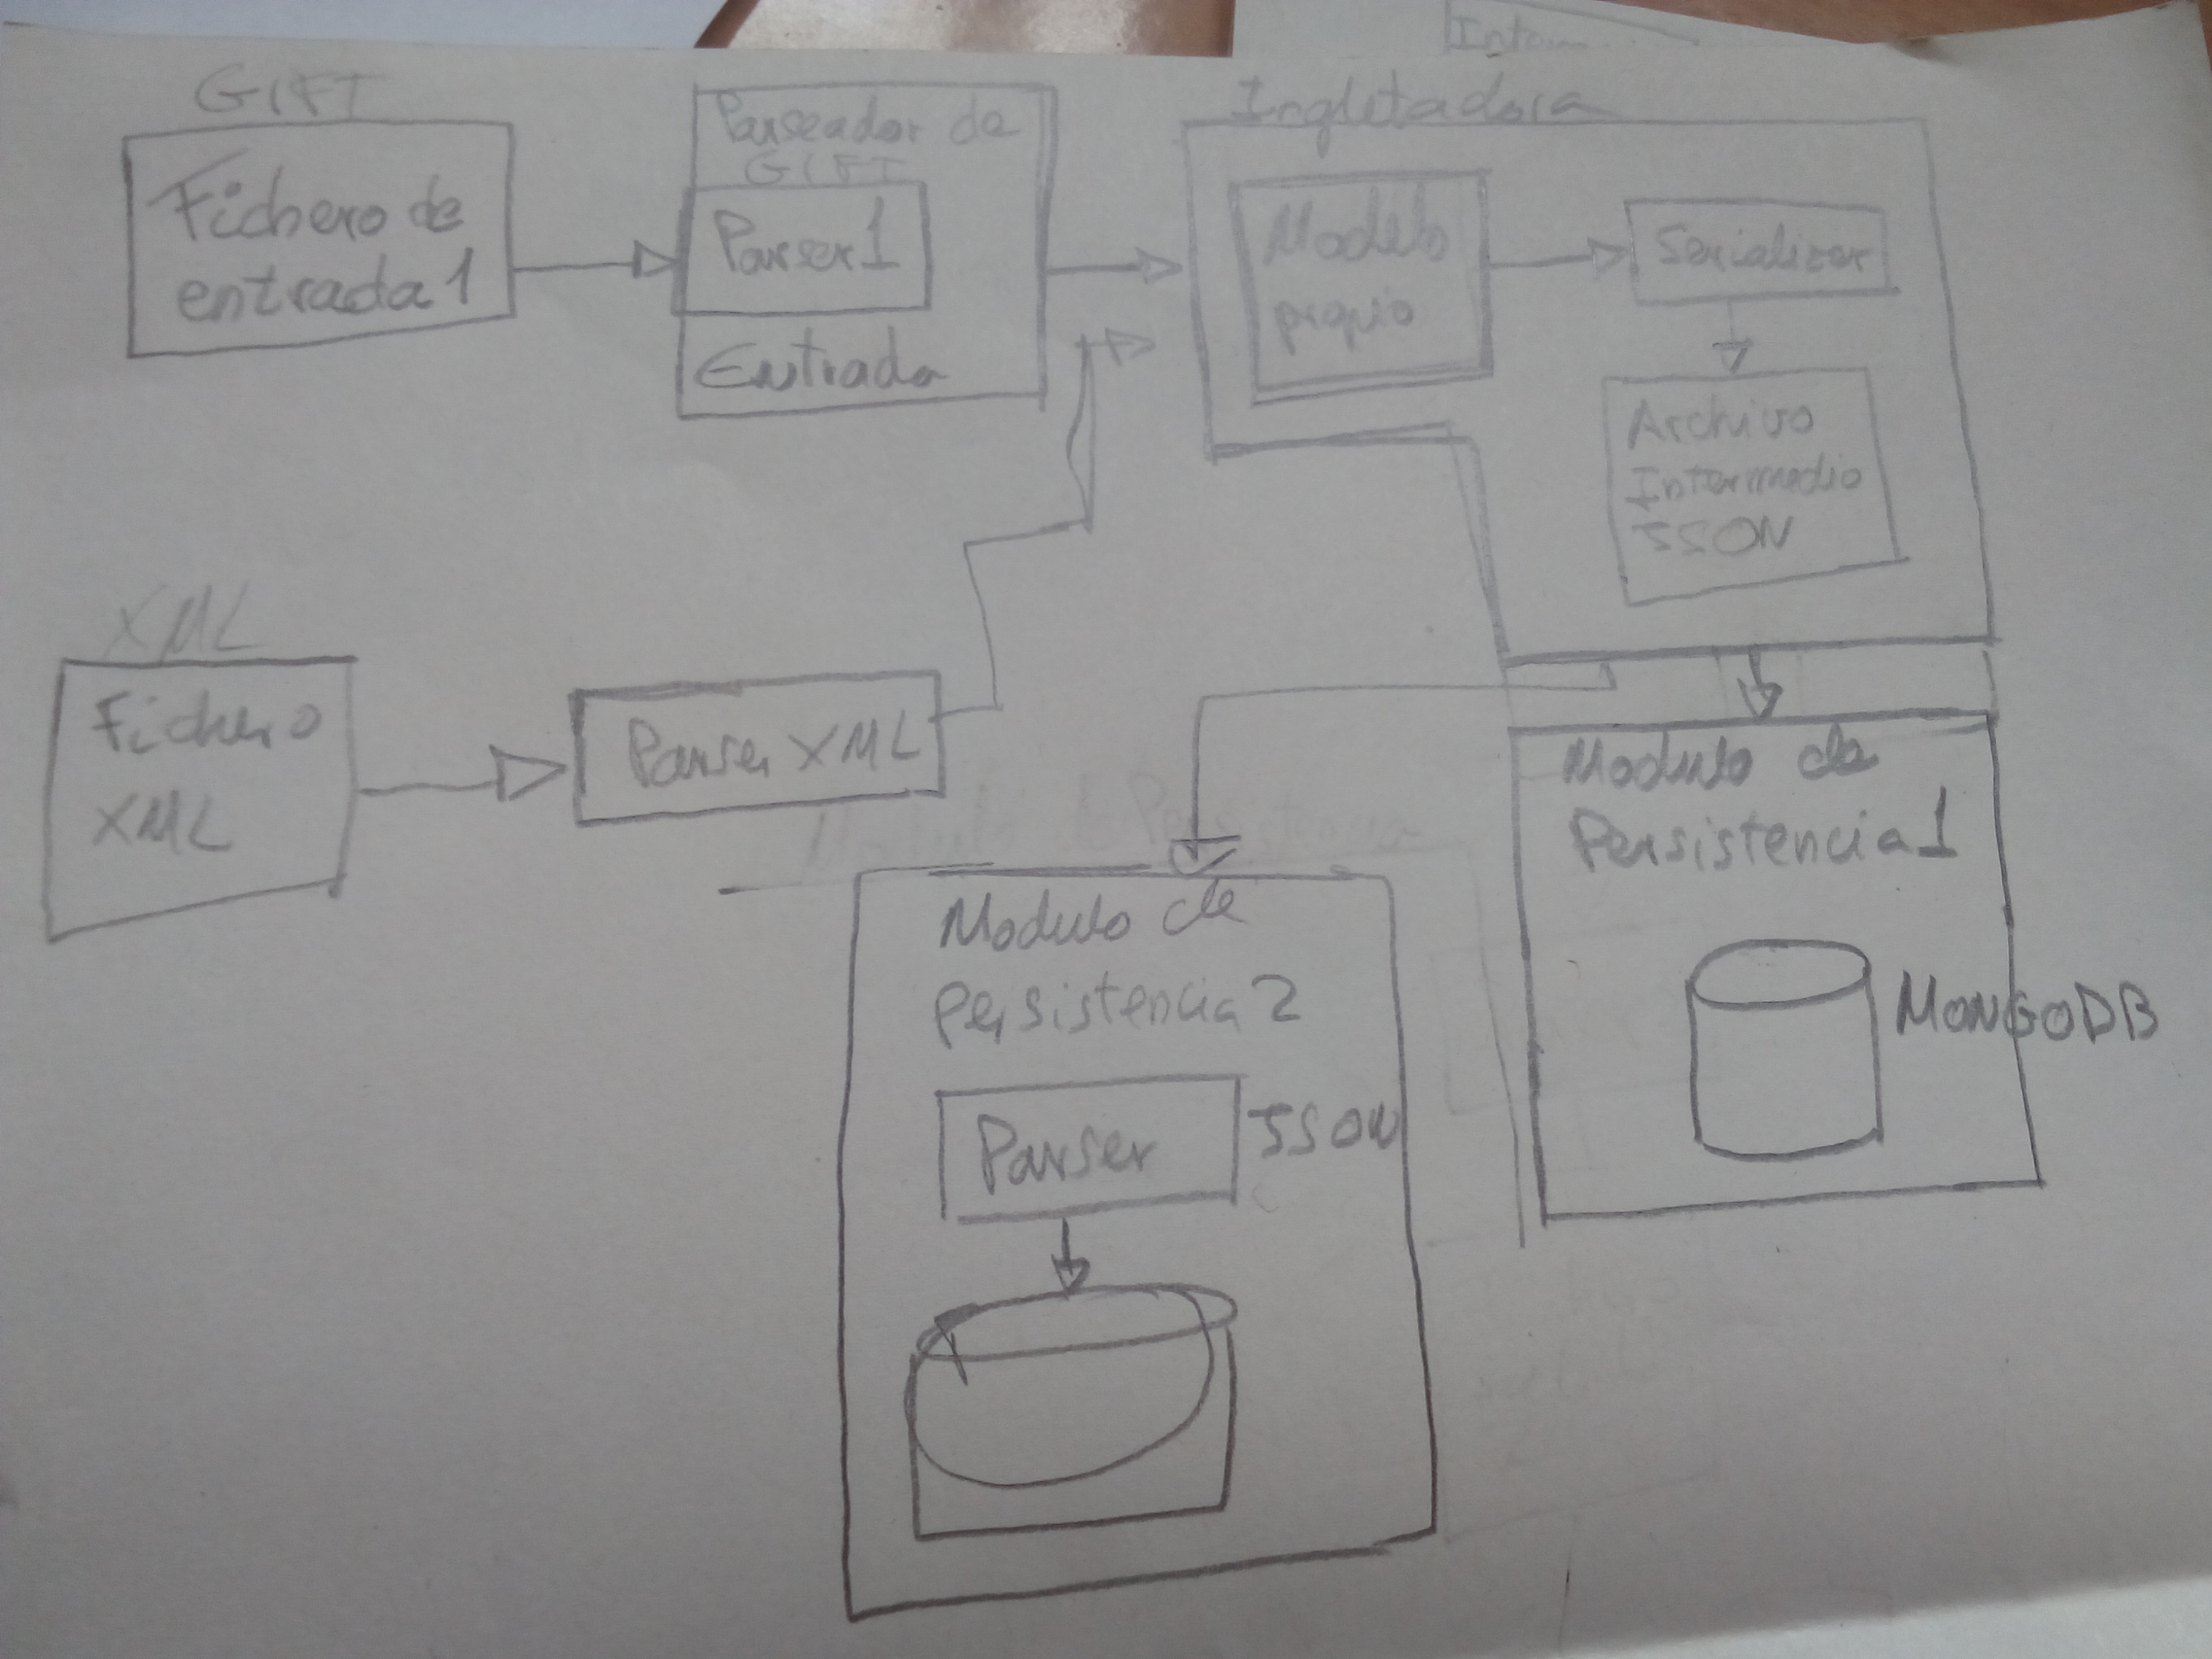 GIFT
Fichero de
entrada 1
Parseador de
GIFT
Parser 1
Entrada
Ingletadora
Modelo
propio
Serializer
Archivo
Intermedio
JSON
XML
Fichero
XML
Parser XML
Modulo de
Persistencia 1
MONGODB
Modulo de
persistencia 2
Parser
JSON